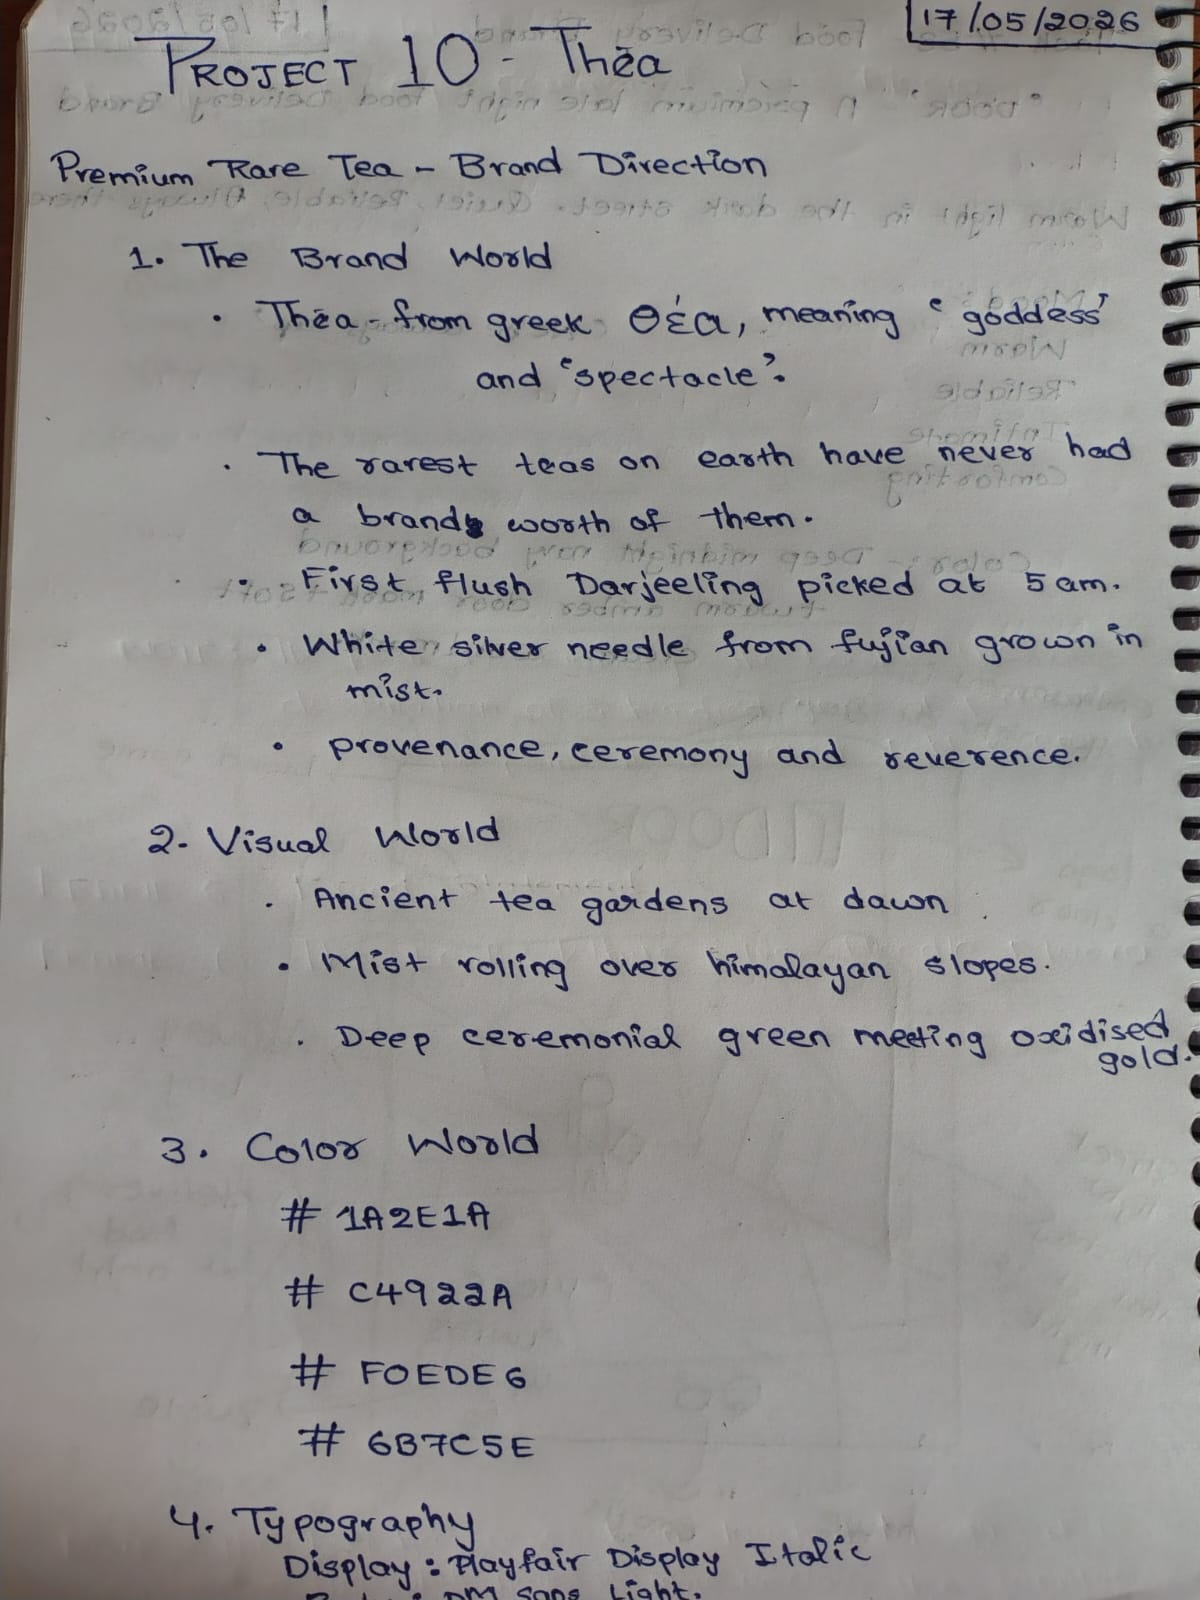 17/05/2026
PROJECT 10 - Thēa
Premium Rare Tea - Brand Direction
1. The Brand World
• Thēa - from greek Θέα, meaning 'goddess'
and 'spectacle'.
• The rarest teas on earth have never had
a brand worth of them.
• First flush Darjeeling picked at 5 am.
• White silver needle from fujian grown in
mist.
• provenance, ceremony and reverence.
2. Visual World
• Ancient tea gardens at dawn
• Mist rolling over himalayan slopes.
• Deep ceremonial green meeting oxidised
gold.
3. Color World
# 1A2E1A
# C4922A
# F0EDE6
# 6B7C5E
4. Typography
Display : Playfair Display Italic
DM Sans Light.